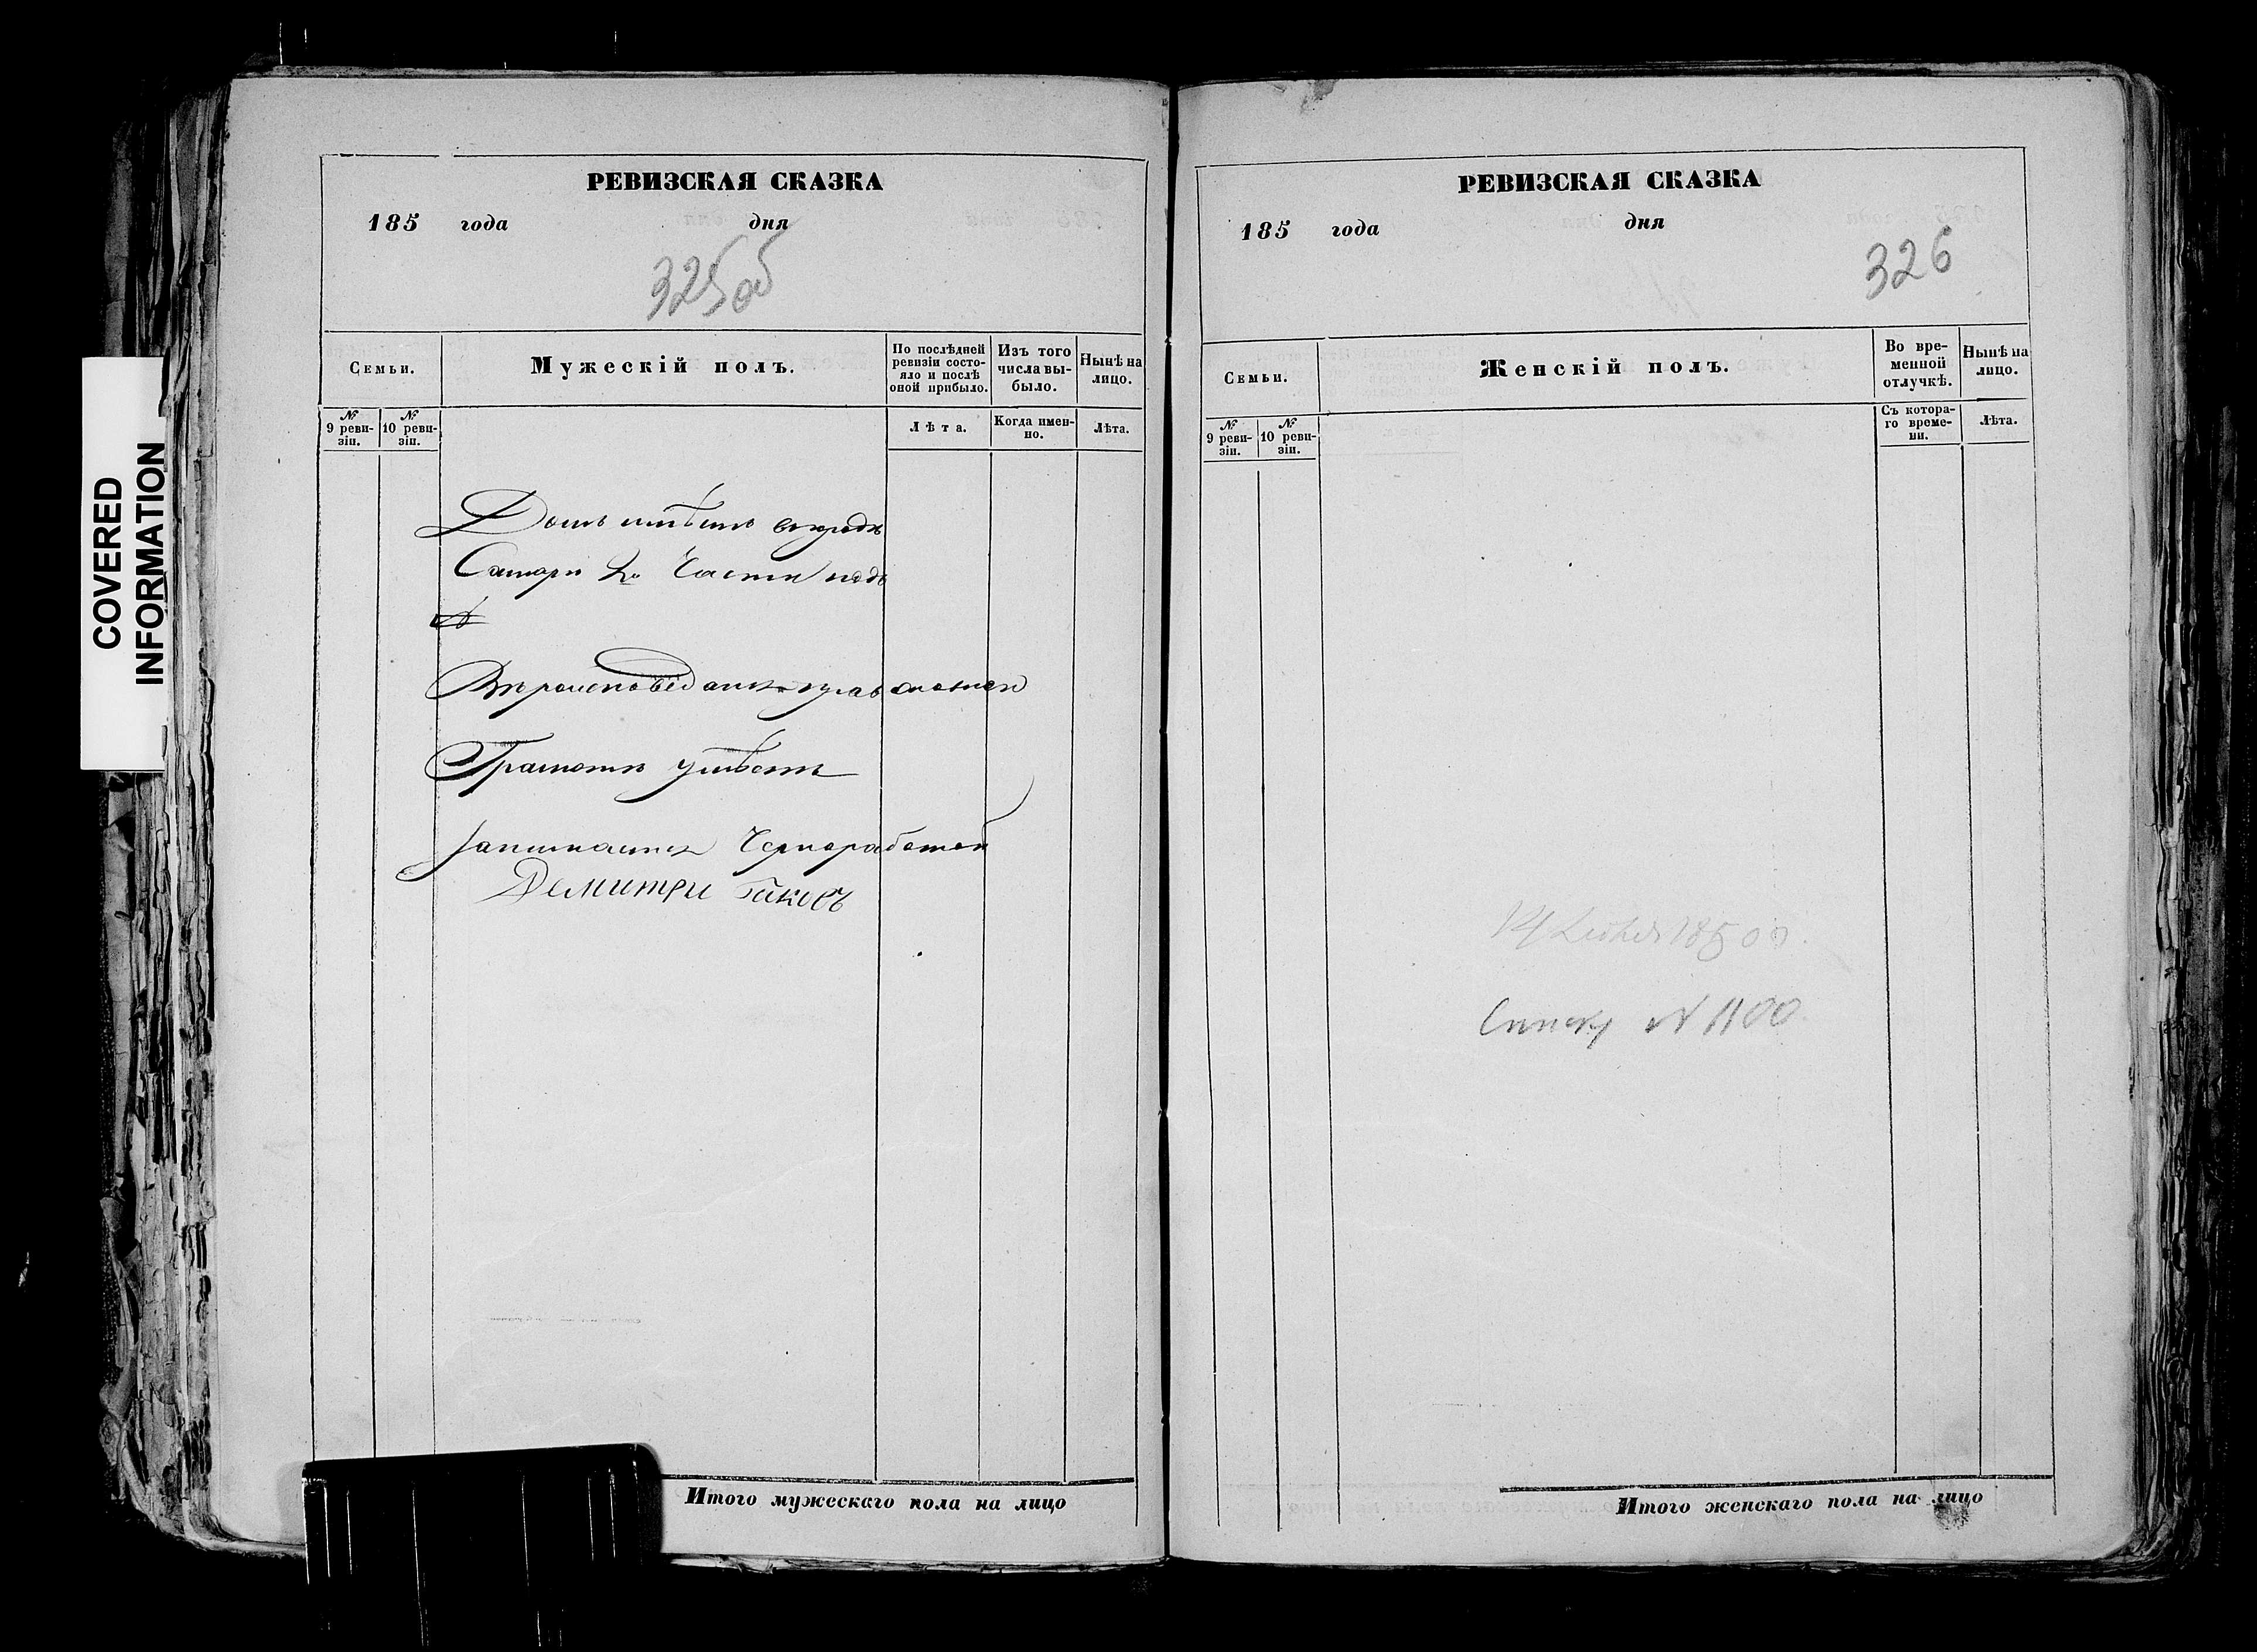 COVERED
INFORMATION
РЕВИЗСКАЯ СКАЗКА
185 года дня
325об
Семьи.
Мужескій полъ.
По послѣдней
ревизіи состо-
яло и послѣ
оной прибыло.
Изъ того
числа вы-
было.
Нынѣ на
лицо.
№
9 реви-
зіи.
№
10 реви-
зіи.
Лѣта.
Когда имен-
но.
Лѣта.
Домъ имѣетъ въ городѣ
Самарѣ 2й Части подъ
№
Вѣроисповѣданія православной
Грамотѣ умѣетъ
Занимается Черноработой
Демитри
Итого мужескаго пола на лицо
РЕВИЗСКАЯ СКАЗКА
185 года дня
326
Семьи.
Женскій полъ.
Во вре-
менной
отлучкѣ.
Нынѣ на
лицо.
№
9 реви-
зіи.
№
10 реви-
зіи.
Съ котора-
го време-
ни.
Лѣта.
№ 1100
Итого женскаго пола на лицо